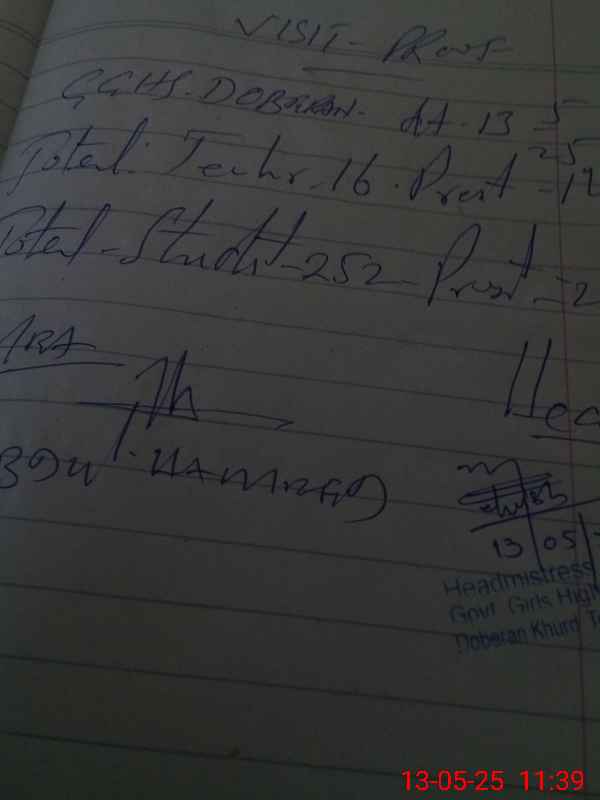 VISIT - PROOF
GGHS. DOBERAN. dt. 13 5
25
Total. Teachr - 16. Prest - 12
Total - Studt - 252 - Prest - 2
ABDUL HAMEED
13 05
Headmistress
Govt Girls High
Doberan Khurd T
13-05-25 11:39